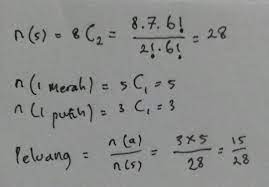 n(s) = 8C₂ = 8.7.6! / 2!.6! = 28
n(1 merah) = 5C₁ = 5
n(1 putih) = 3C₁ = 3
Peluang = n(a) / n(s) = 3×5 / 28 = 15 / 28